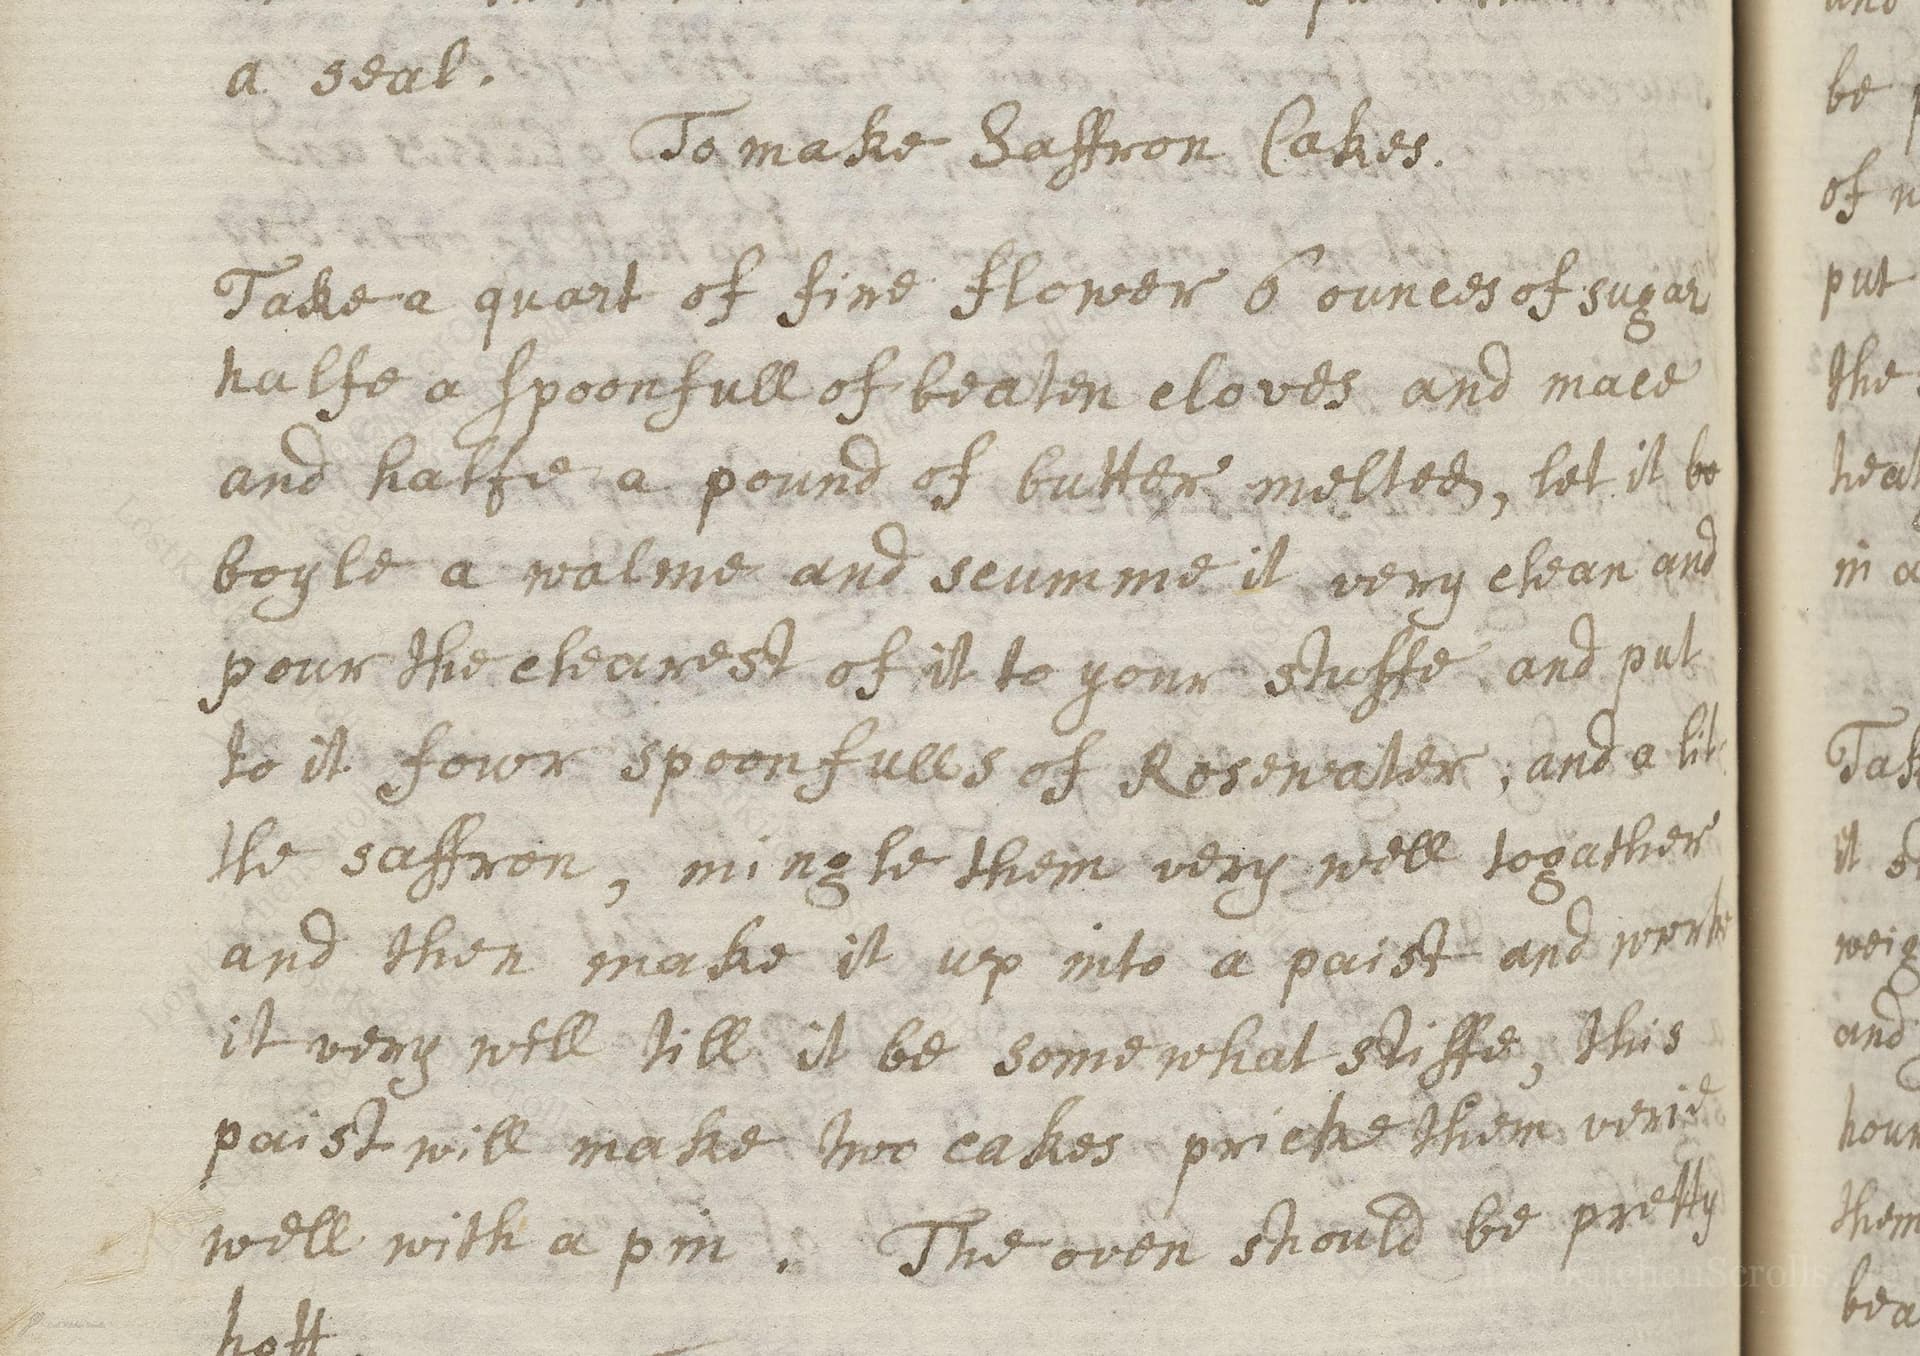 a seal.
To make Saffron Cakes.
Take a quart of fine flower 6 ounces of sugar
halfe a spoonfull of beaten cloves and mace
and halfe a pound of butter melted, let it bo
boyle a walme and scumme it very clean and
pour the clearest of it to your stuffe and put
to it fowr spoonfulls of Rosewater, and a lit
tle saffron, mingle them very well togather
and then make it up into a paist and worke
it very well till it be somewhat stiffe, this
paist will make two cakes pricke them verie
well with a pin. The oven should be pretty
hott.
be
of
put
the
in a
it
and
them